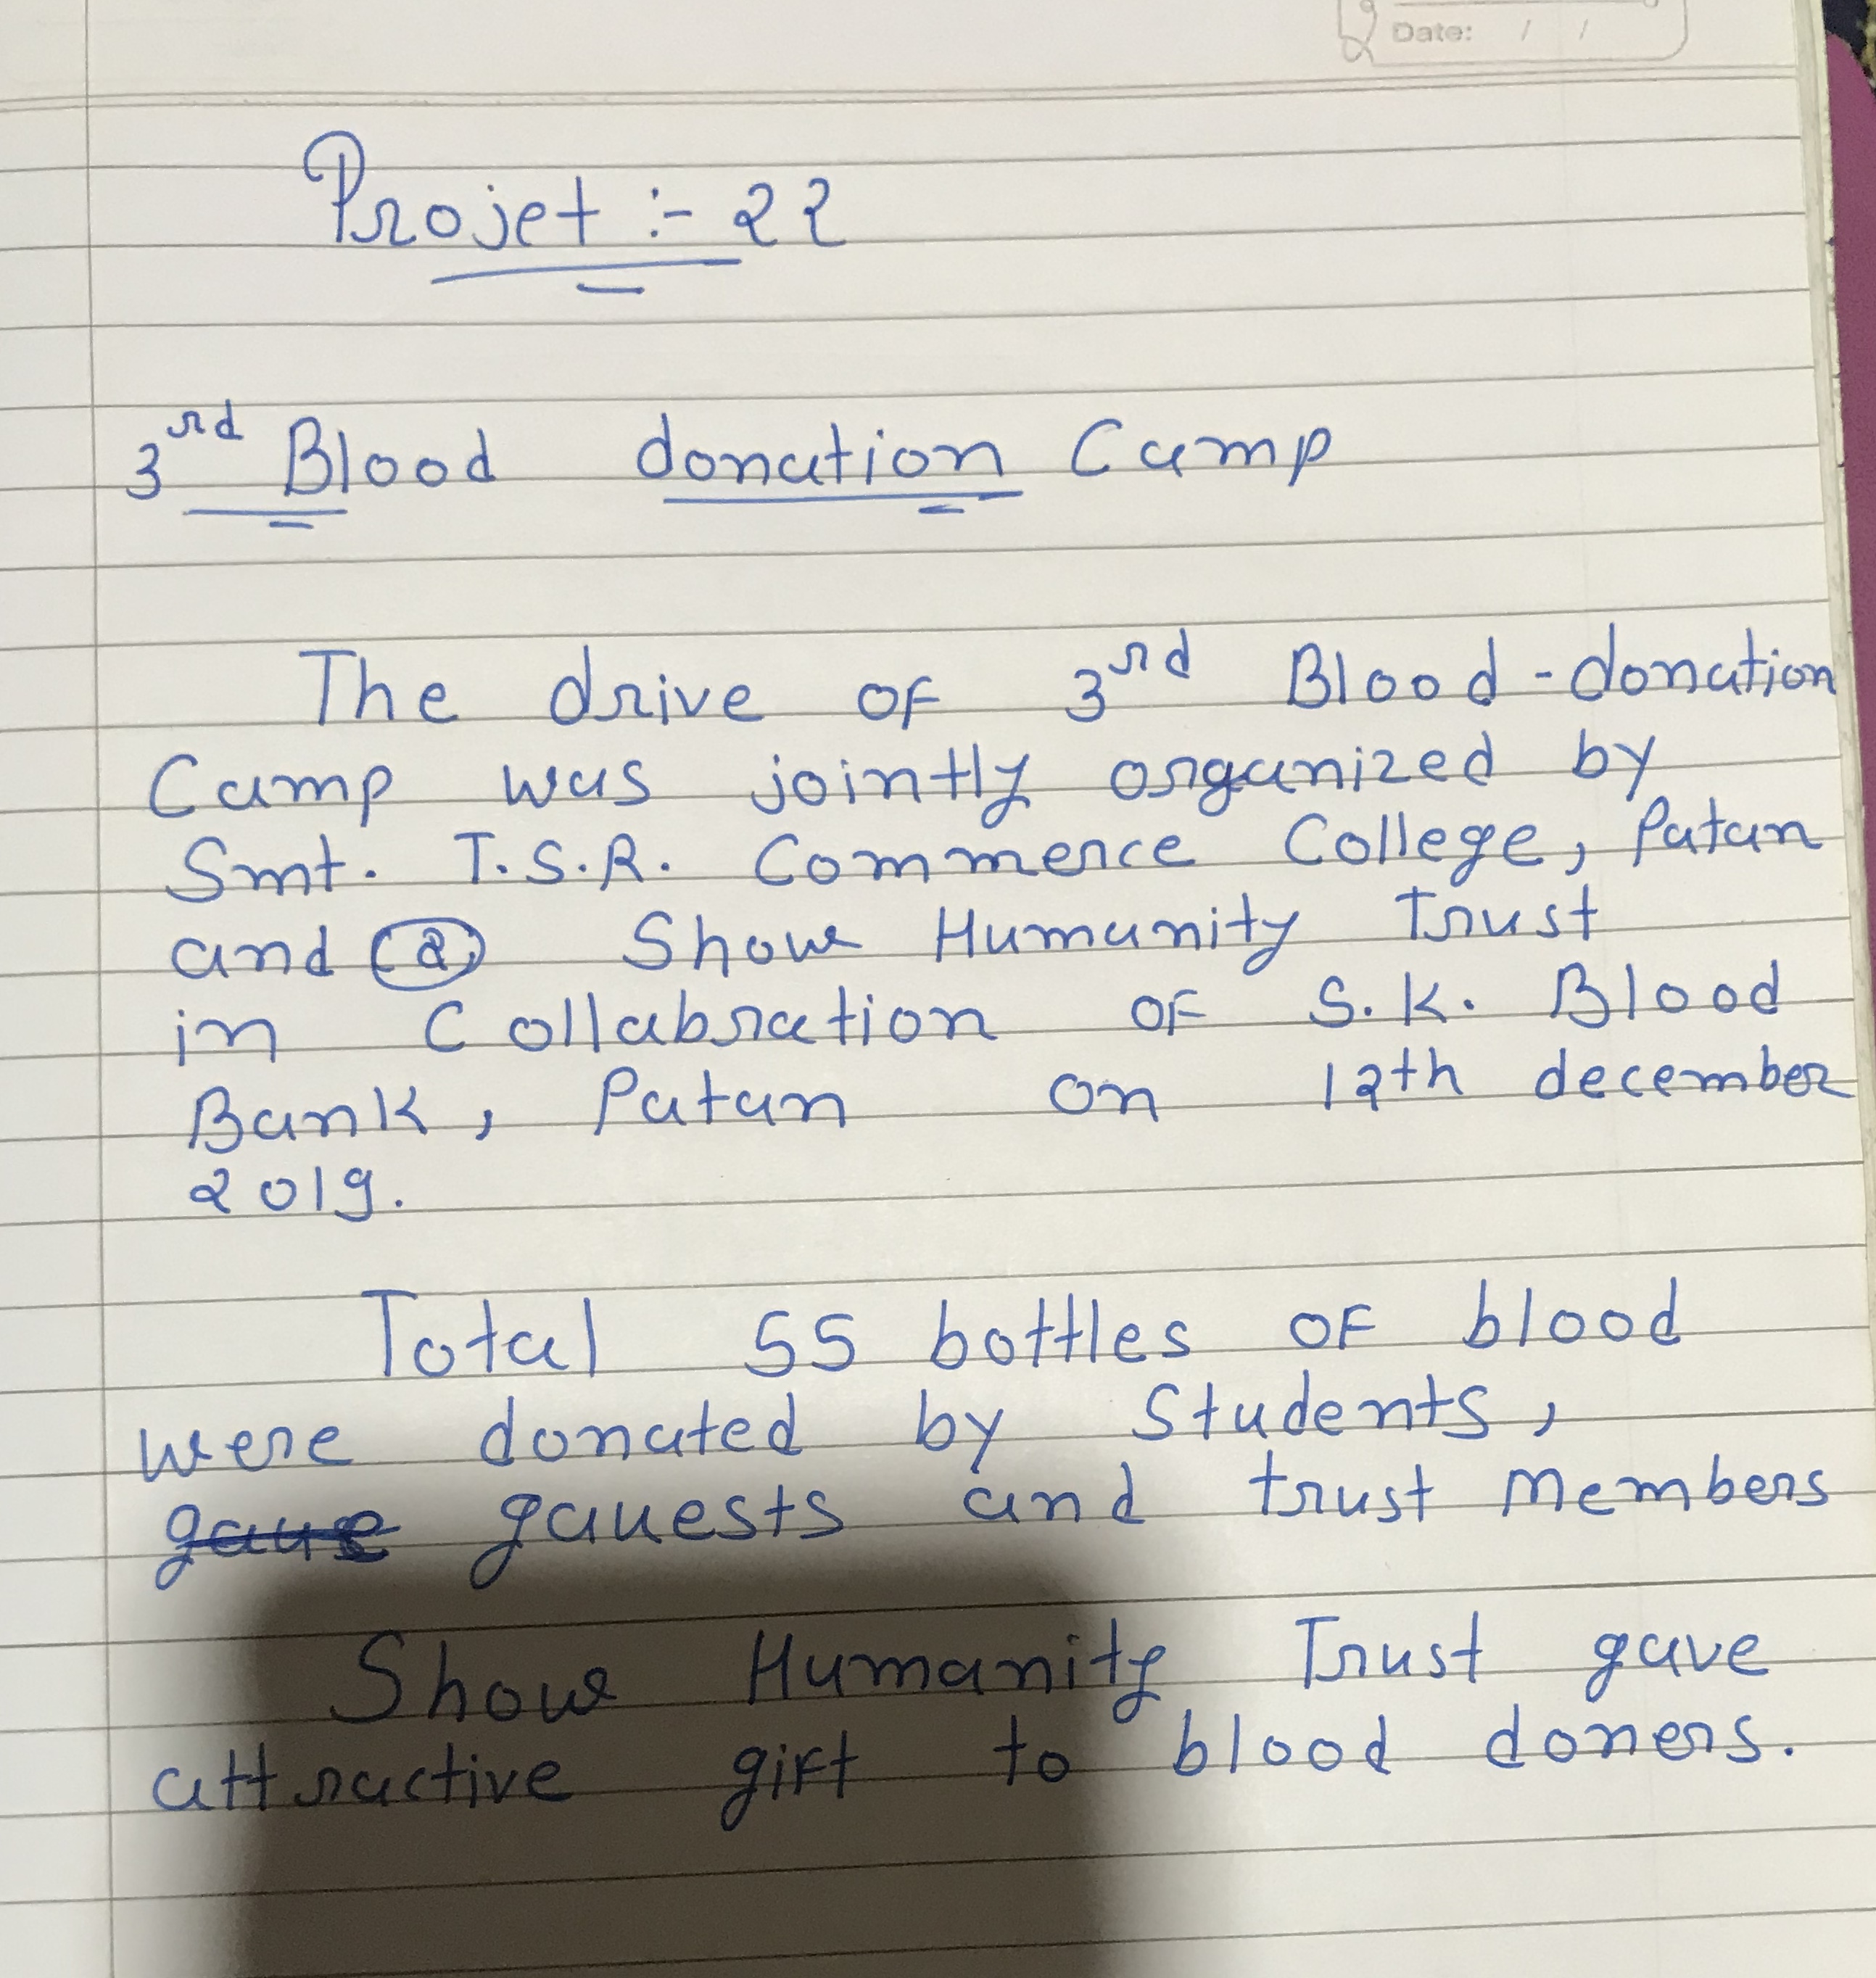 Date: / /
Projet :- 22
3rd Blood donation Camp
The drive of 3rd Blood-donation
Camp was jointly organized by
Smt. T.S.R. Commerce College, Patan
and (2) Show Humanity Trust
in Collabration of S.K. Blood
Bank, Patan on 12th december
2019.
Total 55 bottles of blood
were donated by Students,
gauests and trust members
Show Humanity Trust gave
attractive gift to blood doners.